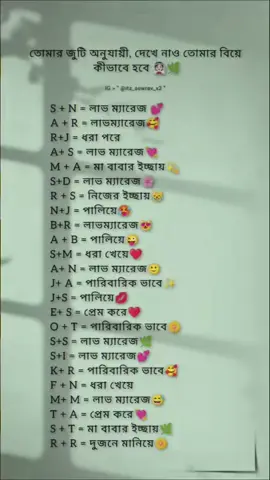 তোমার জুটি অনুযায়ী, দেখে নাও তোমার বিয়ে
কীভাবে হবে 👰🌿
S + N = লাভ ম্যারেজ 💕
A + R = লাভম্যারেজ🥰
R+J = ধরা পরে
A+ S = লাভ ম্যারেজ 💘
M + A = মা বাবার ইচ্ছায় 💫
S+D = লাভ ম্যারেজ
R + S = নিজের ইচ্ছায়
N+J = পালিয়ে🥵
B+R = লাভম্যারেজ😻
A + B = পালিয়ে😜
S+M = ধরা খেয়ে❤️
A+ N = লাভ ম্যারেজ
J+ A = পারিবারিক ভাবে ✨
J+S = পালিয়ে💋
E+ S = প্রেম করে❤️
O + T = পারিবারিক ভাবে
S+S = লাভ ম্যারেজ🌿
S+I = লাভ ম্যারেজ💕
K+ R = পারিবারিক ভাবে🥰
F + N = ধরা খেয়ে
M+ M = লাভ ম্যারেজ😅
T + A = প্রেম করে💘
S + T = মা বাবার ইচ্ছায়🌿
R + R = দুজনে মানিয়ে